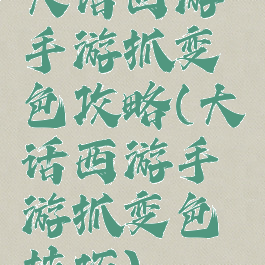 大话西游
手游抓变
色攻略(大
话西游手
游抓变色
技巧)